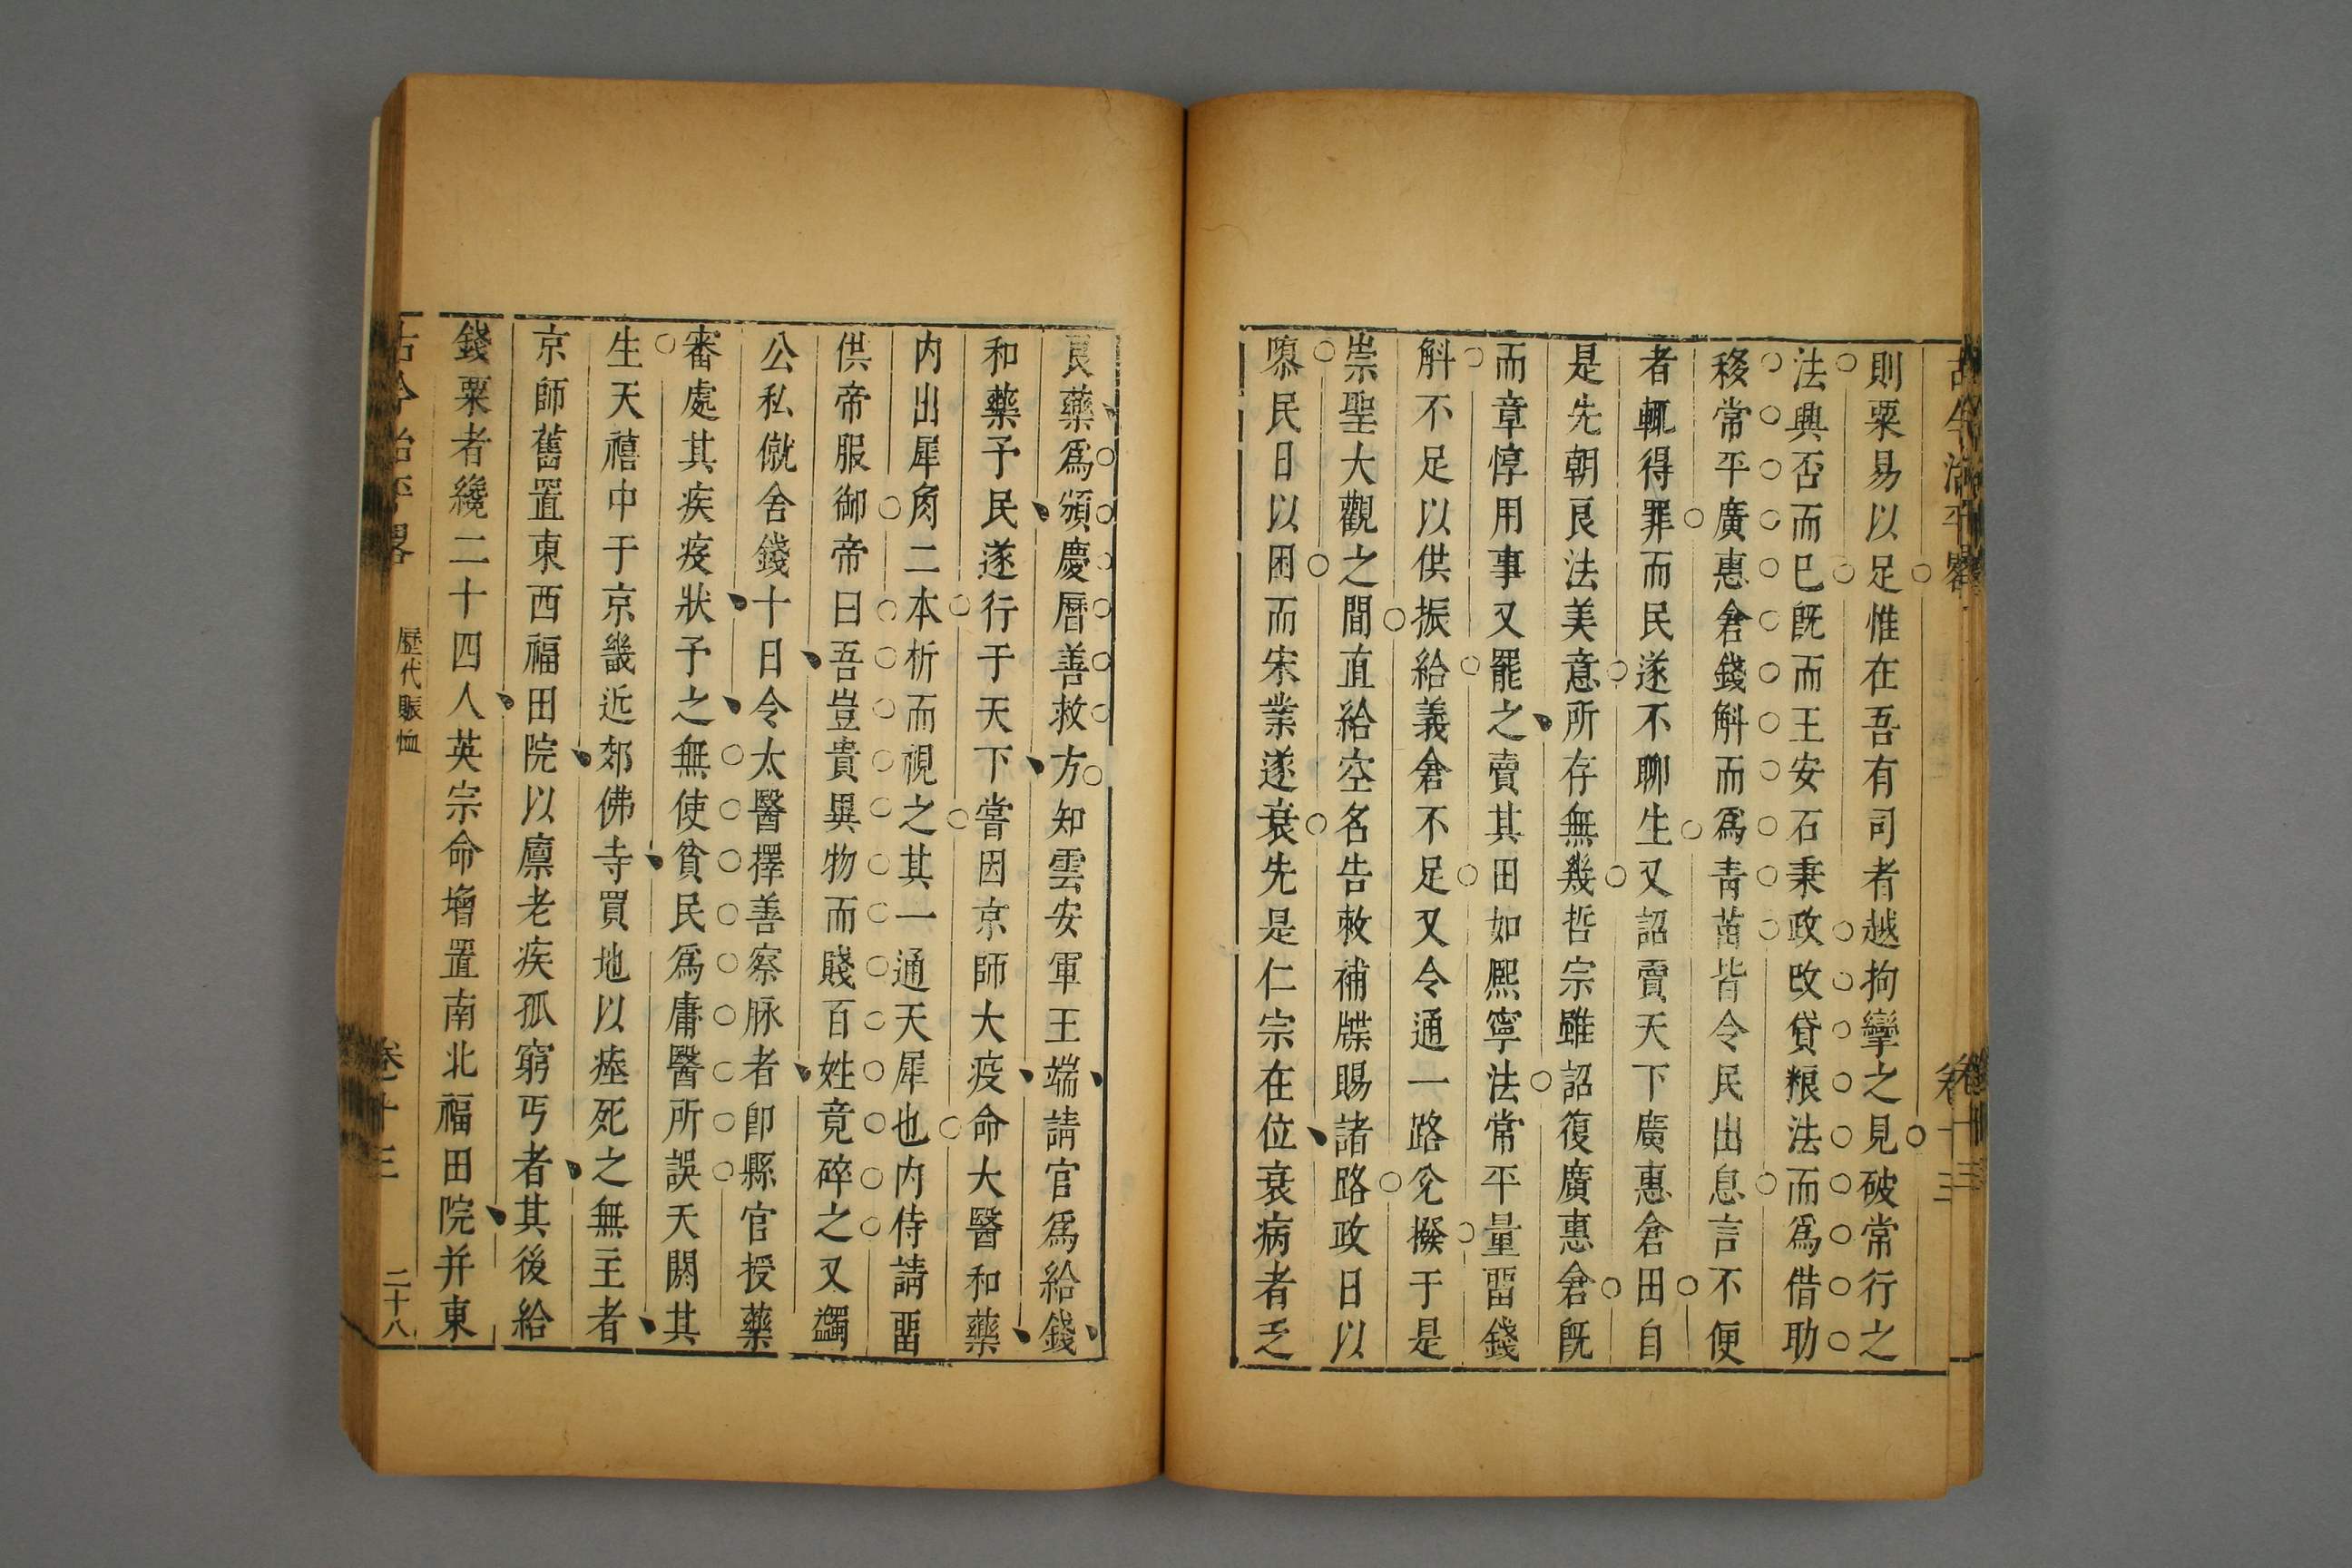 古今治平畧
卷十三
則粟易以足惟在吾有司者越拘攣之見破常行之
法興否而已旣而王安石秉政改貸粮法而爲借助
移常平廣惠倉錢斛而爲青苗皆令民出息言不便
者輒得罪而民遂不聊生又詔賣天下廣惠倉田自
是先朝良法美意所存無幾哲宗雖詔復廣惠倉旣
而章惇用事又罷之賣其田如熙寧法常平量畱錢
斛不足以供振給義倉不足又令通一路兊撥于是
崇聖大觀之間直給空名告敕補牒賜諸路政日以
隳民日以困而宋業遂衰先是仁宗在位哀病者乏
良藥爲頒慶曆善救方知雲安軍王端請官爲給錢
和藥予民遂行于天下嘗因京師大疫命大醫和藥
内出犀角二本析而視之其一通天犀也内侍請畱
供帝服御帝曰吾豈貴異物而賤百姓竟碎之又蠲
公私僦舍錢十日令太醫擇善察脉者卽縣官授藥
審處其疾疫狀予之無使貧民爲庸醫所誤夭閼其
生天禧中于京畿近郊佛寺買地以瘞死之無主者
京師舊置東西福田院以廪老疾孤窮丐者其後給
錢粟者纔二十四人英宗命增置南北福田院并東
古今治平畧
歷代賑恤
卷十三
二十八